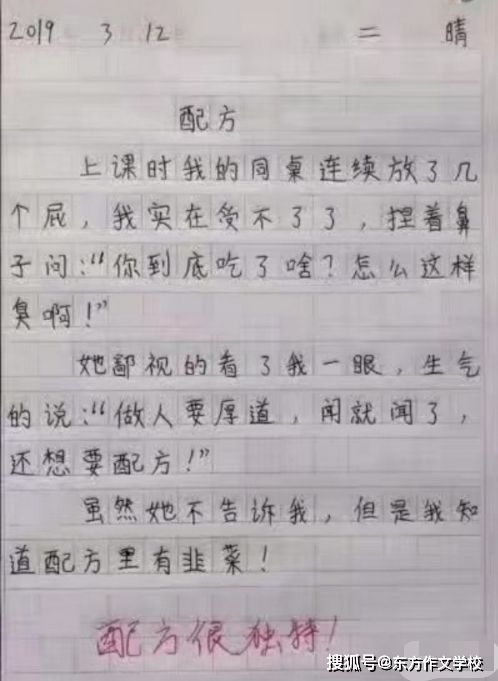 2019 3 12 二 晴
配方
上课时我的同桌连续放了几
个屁，我实在受不了了，捏着鼻
子问：“你到底吃了啥？怎么这样
臭啊！”
她鄙视的看了我一眼，生气
的说：“做人要厚道，闻就闻了，
还想要配方！”
虽然她不告诉我，但是我知
道配方里有韭菜！
配方很独特！
搜狐号@东方作文学校